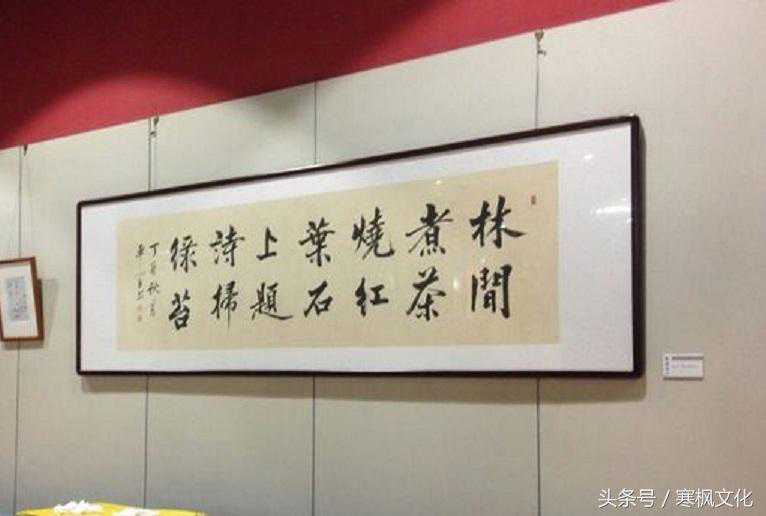 林間
煮茶
燒紅
葉石
上題
詩掃
綠苔
丁酉秋月
头条号 / 寒枫文化